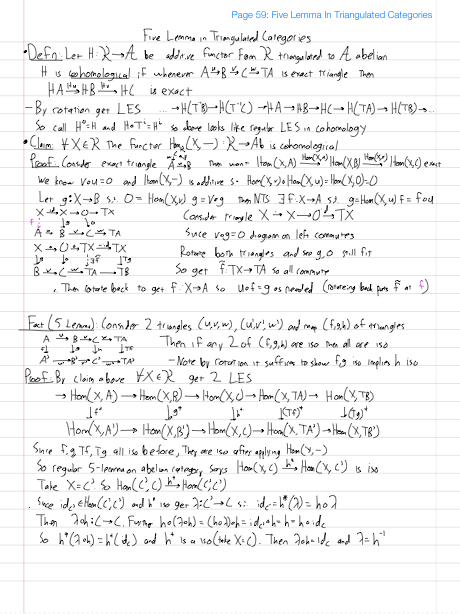 Page 59: Five Lemma In Triangulated Categories
Five Lemma in Triangulated Categories
• Defn: Let H: R→A be additive functor from R triangulated to A abelian
H is cohomological if whenever A →u B →v C →w TA is exact triangle then
HA →Hu HB →Hv HC is exact
- By rotation get LES ... → H(T⁻¹B) → H(T⁻¹C) → HA → HB → HC → H(TA) → H(TB) → ...
So call H⁰=H and H∘Tⁱ=Hⁱ so above looks like regular LES in cohomology
• Claim: ∀X∈R The functor Hom_R(X,-): R→Ab is cohomological
Proof: Consider exact triangle A →u B Then want Hom(X,A) → Hom(X,B) → Hom(X,C) exact
We know v∘u=0 and Hom(X,-) is additive so Hom(X,v)∘Hom(X,u)=Hom(X,0)=0
Let g: X→B s.t. 0 = Hom(X,v) g = v∘g Then NTS ∃ f: X→A s.t. g = Hom(X,u) f = f∘u
X → X → 0 → TX Consider triangle X → X → 0 → TX
f ↓g ↓0
A →u B →v C →w TA Since v∘g=0 diagram on left commutes
X → 0 → TX →id TX Rotate both triangles and see g, 0 still fit
↓g ↓0 ↓∃f̃ ↓Tg
B → C → TA → TB So get f̃: TX→TA so all commute
. Then rotate back to get f: X→A so u∘f=g as needed (rotating back puts f̃ at f)
Fact (5 Lemma): Consider 2 triangles (u,v,w), (u',v',w') and map (f,g,h) of triangles
A →u B →v C →w TA Then if any 2 of (f,g,h) are iso then all are iso
f↓ ↓g ↓h ↓Tf
A' → B' → C' → TA' - Note by rotation it suffices to show f,g iso implies h iso
Proof: By claim above ∀X∈R get 2 LES
→ Hom(X,A) → Hom(X,B) → Hom(X,C) → Hom(X,TA) → Hom(X,TB)
↓f* ↓g* ↓h* ↓(Tf)* ↓(Tg)*
Hom(X,A') → Hom(X,B') → Hom(X,C) → Hom(X,TA') → Hom(X,TB')
Since f, g, Tf, Tg all iso before, They are iso after applying Hom(X,-)
So regular 5-lemma on abelian category says Hom(X,C) →h* Hom(X,C') is iso
Take X=C' So Hom(C',C) →h* Hom(C',C')
. Since id_C'∈Hom(C',C') and h* iso get λ: C'→C s.t. id_C'=h*(λ) = h∘λ
Then λ∘h: C→C. Further h∘(λ∘h) = (h∘λ)∘h = id_C'∘h = h = h∘id_C
So h*(λ∘h) = h*(id_C) and h* is a iso (take X=C). Then λ∘h=id_C and λ=h⁻¹